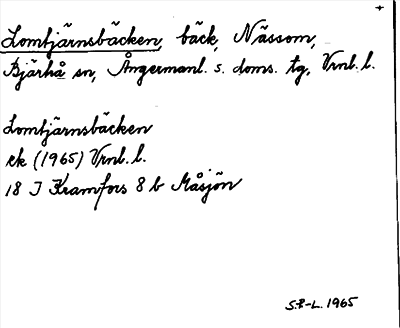 +
Lomtjärnsbäcken, bäck, Nässom,
Bjärtrå sn, Ångermanl. s. doms. tg, Vrnl. l.
Lomtjärnsbäcken
ek (1965) Vrnl. l.
18 I Kramfors 8 b Måsjön
S.P-L. 1965